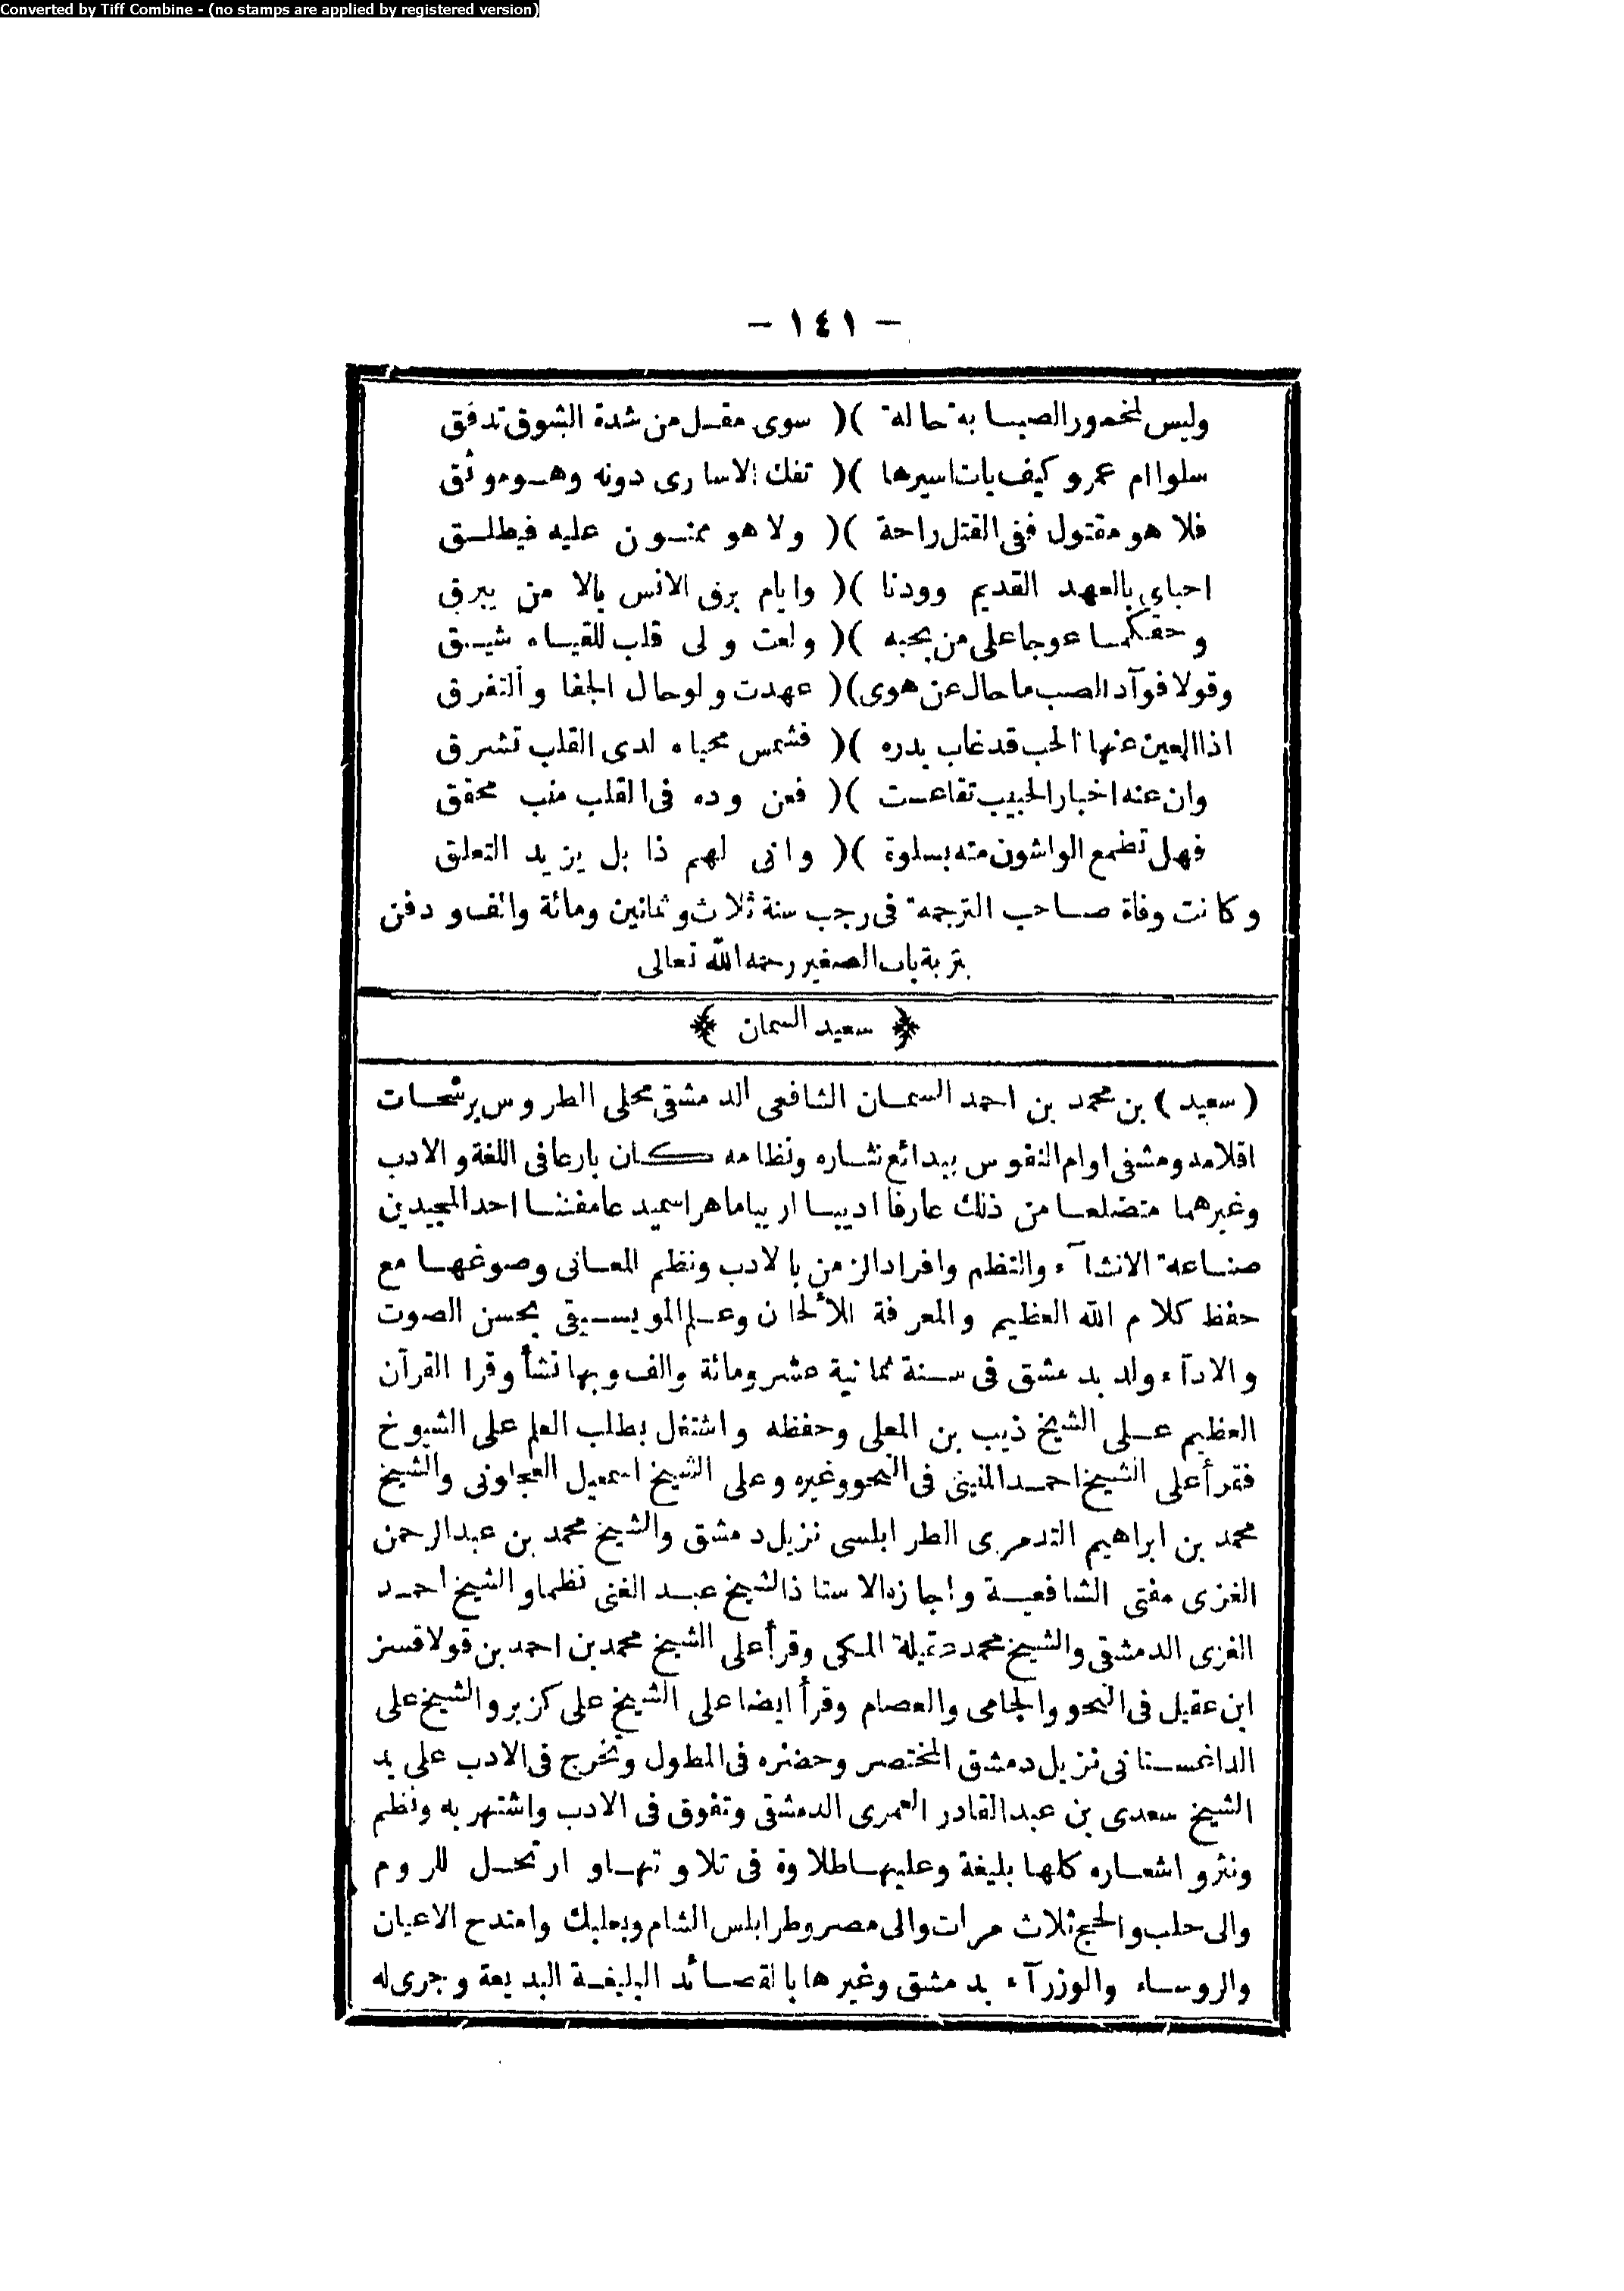 Converted by Tiff Combine - (no stamps are applied by registered version)
- ١٤١ -
وليس لمخمور الصبا به حاله )( سوى مقل من شدة الشوق تدفق
سلوا ام عمرو كيف بات اسيرها )( تفك الاسارى دونه وهو موثق
فلا هو مقتول ففى القتل راحة )( ولا هو ممنون عليه فيطلق
احباى بالعهد القديم وودنا )( وايام برق الانس بالا من يبرق
وحقكما عوجا على من بحبه )( ولعت ولى قلب للقياه شيق
وقولا فوآد الصب ما حال عن هوى )( عهدت ولو حال الجفا والتفرق
اذا العين عنها الحب قد غاب بدره )( فشمس محياه لدى القلب تشرق
وان عنه اخبار الحبيب تقاعست )( فعن وده فى القلب منب محقق
فهل تطمع الواشون منه بسلوة )( وانى لهم ذا بل يزيد التعلق
وكانت وفاة صاحب الترجمه فى رجب سنة ثلاث وثمانين ومائة والف ودفن
بتربة باب الصغير رحمه الله تعالى
﴿ سعيد السمان ﴾
( سعيد ) بن محمد بن احمد السمان الشافعى الدمشقى محلى الطروس برشحات
اقلامه ومشفى اوام النفوس ببدائع نثاره ونظامه كان بارعا فى اللغة والادب
وغيرهما متضلعا من ذلك عارفا اديبا اريبا ماهرا سميدعا مفننا احد المجيدين
صناعة الانشآء والنظم وافراد الزمن بالادب ونظم المعانى وصوغها مع
حفظ كلام الله العظيم والمعرفة للألحان وعلم الموسيقى بحسن الصوت
والادآء ولد بدمشق فى سنة ثمانية عشر ومائة والف وبها نشأ وقرا القرآن
العظيم على الشيخ ذيب بن المعلى وحفظه واشتغل بطلب العلم على الشيوخ
فقرأ على الشيخ احمد المنينى فى النحو وغيره وعلى الشيخ اسمعيل العجلونى والشيخ
محمد بن ابراهيم التدمرى الطرابلسى نزيل دمشق والشيخ محمد بن عبد الرحمن
الغزى مفتى الشافعية واجازه الاستاذ الشيخ عبد الغنى نظما والشيخ احمد
الغزى الدمشقى والشيخ محمد المكى وقرأ على الشيخ محمد بن احمد بن قولاقسز
ابن عقيل فى النحو والجامى والعصام وقرأ ايضا على الشيخ على كزبر والشيخ على
الداغستانى نزيل دمشق المختصر وحضره فى المطول وتخرج فى الادب على يد
الشيخ سعدى بن عبد القادر العمرى الدمشقى وتفوق فى الادب واشتهر به ونظم
ونثر واشعاره كلها بليغة وعليها طلاوة فى تلاوتها وارتحل للروم
والى حلب والحج ثلاث مرات والى مصر وطرابلس الشام وبعلبك وامتدح الاعيان
والروساء والوزرآء بدمشق وغيرها بالقصائد البليغة البديعة وجرى له